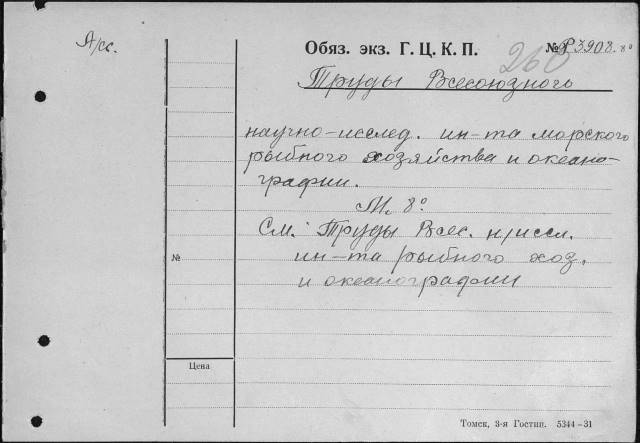 А/сс.
Обяз. экз. Г. Ц. К. П.
№ Р3908. 8°
260
Труды Всесоюзного
научно-исслед. ин-та морского
рыбного хозяйства и океано-
графии.
М. 8°
См. Труды Всес. н/иссл.
ин-та рыбного хоз.
и океанографии
№
Цена
Томск, 3-я Гостип. 5344-31